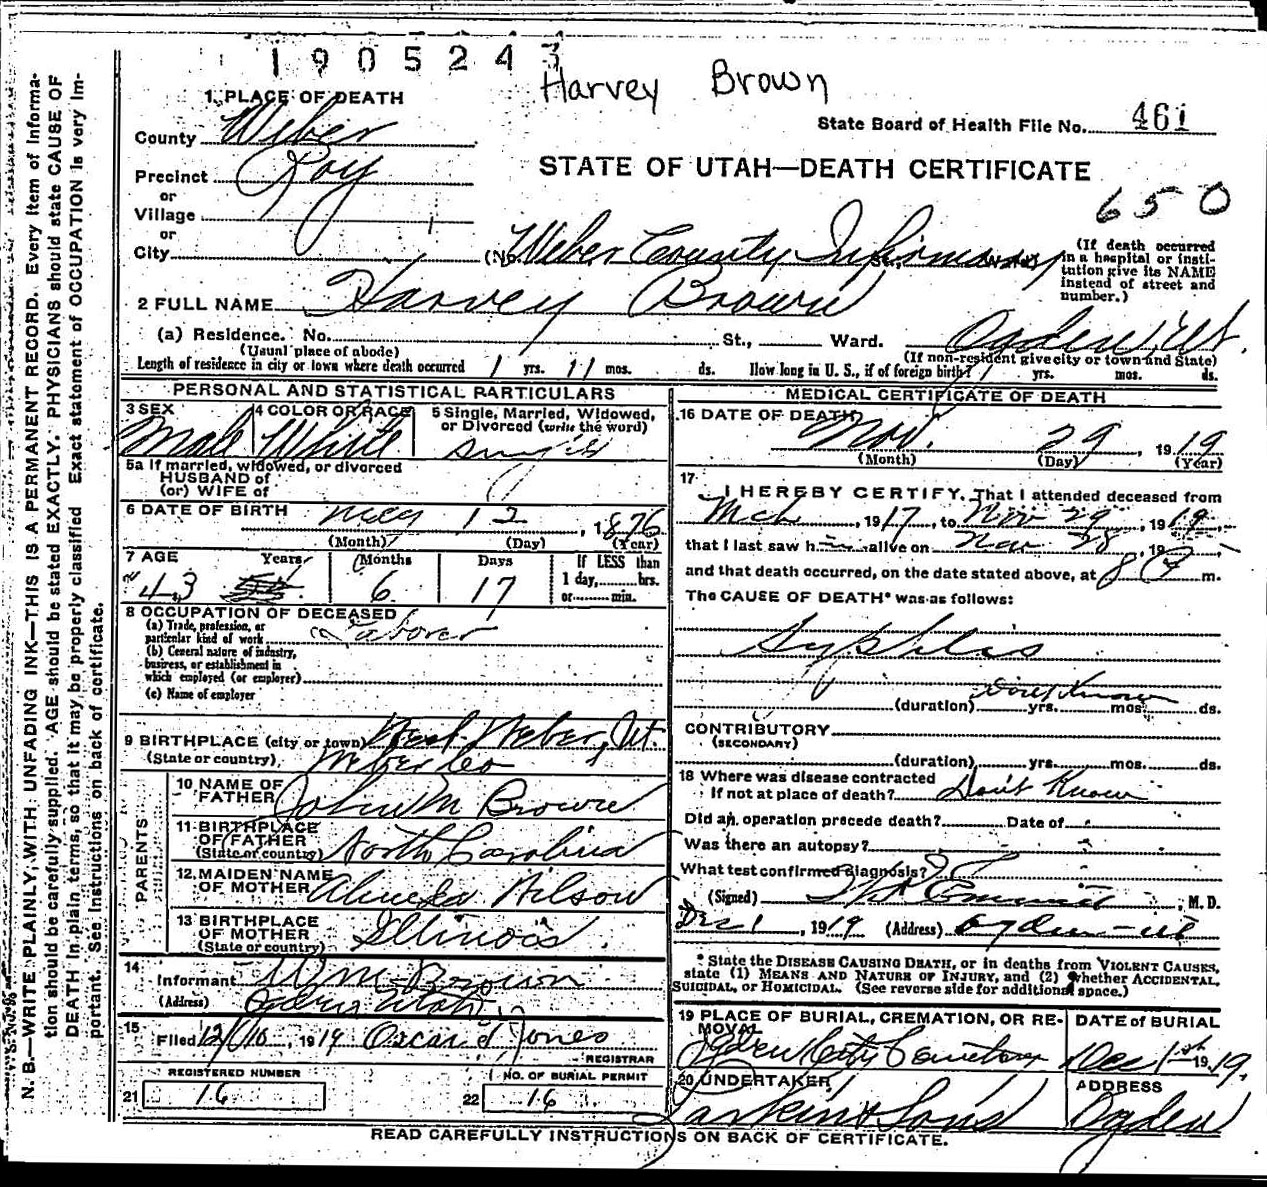 1905243
Harvey Brown
1. PLACE OF DEATH
County Weber
State Board of Health File No. 461
Precinct Roy
STATE OF UTAH—DEATH CERTIFICATE
or
Village
650
or
City (No. Weber County Infirmary St., Ward)
(If death occurred in a hospital or insti-
tution give its NAME
instead of street and
number.)
2 FULL NAME Harvey Brown
(a) Residence. No. St., Ward. Ogden, Ut.
(Usual place of abode) (If non-resident give city or town and State)
Length of residence in city or town where death occurred 1 yrs. 11 mos. ds. How long in U. S., if of foreign birth? yrs. mos. ds.
PERSONAL AND STATISTICAL PARTICULARS
3 SEX 4 COLOR OR RACE 5 Single, Married, Widowed,
or Divorced (write the word)
Male White Single
5a If married, widowed, or divorced
HUSBAND of
(or) WIFE of
6 DATE OF BIRTH May 12, 1876
(Month) (Day) (Year)
7 AGE Years Months Days If LESS than
1 day, hrs.
or min.
43 6 17
8 OCCUPATION OF DECEASED
(a) Trade, profession, or
particular kind of work Laborer
(b) General nature of industry,
business, or establishment in
which employed (or employer)
(c) Name of employer
9 BIRTHPLACE (city or town) West Weber, Ut.
(State or country) Weber Co
PARENTS
10 NAME OF
FATHER John M Brown
11 BIRTHPLACE
OF FATHER
(State or country) North Carolina
12 MAIDEN NAME
OF MOTHER Wilson
13 BIRTHPLACE
OF MOTHER
(State or country) Illinois.
14 Informant Wm Brown
(Address) Ogden Utah
15 Filed 12/10, 1919 Oscar d Jones
REGISTRAR
REGISTERED NUMBER NO. OF BURIAL PERMIT
21 16 22 16
MEDICAL CERTIFICATE OF DEATH
16 DATE OF DEATH
Nov. 29, 1919
(Month) (Day) (Year)
17
I HEREBY CERTIFY, That I attended deceased from
Mch, 1917, to Nov 29, 1919
that I last saw him alive on Nov 28, 19
and that death occurred, on the date stated above, at 8 P m.
The CAUSE OF DEATH* was as follows:
Syphilis
(duration) Dont Know yrs. mos. ds.
CONTRIBUTORY
(SECONDARY)
(duration) yrs. mos. ds.
18 Where was disease contracted
If not at place of death? Don't Know
Did an operation precede death? Date of
Was there an autopsy?
What test confirmed diagnosis?
(Signed) Emmett, M. D.
Dec 1, 1919 (Address) Ogden - Ut
* State the DISEASE CAUSING DEATH, or in deaths from VIOLENT CAUSES,
state (1) MEANS AND NATURE OF INJURY, and (2) whether ACCIDENTAL,
SUICIDAL, OR HOMICIDAL. (See reverse side for additional space.)
19 PLACE OF BURIAL, CREMATION, OR RE-
MOVAL DATE of BURIAL
Ogden City Cemetery Dec 1st 1919.
20 UNDERTAKER ADDRESS
Larkin & Sons Ogden
READ CAREFULLY INSTRUCTIONS ON BACK OF CERTIFICATE.
N. B.—WRITE PLAINLY, WITH UNFADING INK—THIS IS A PERMANENT RECORD. Every item of informa-
tion should be carefully supplied. AGE should be stated EXACTLY. PHYSICIANS should state CAUSE OF
DEATH in plain terms, so that it may be properly classified. Exact statement of OCCUPATION is very im-
portant. See Instructions on back of certificate.